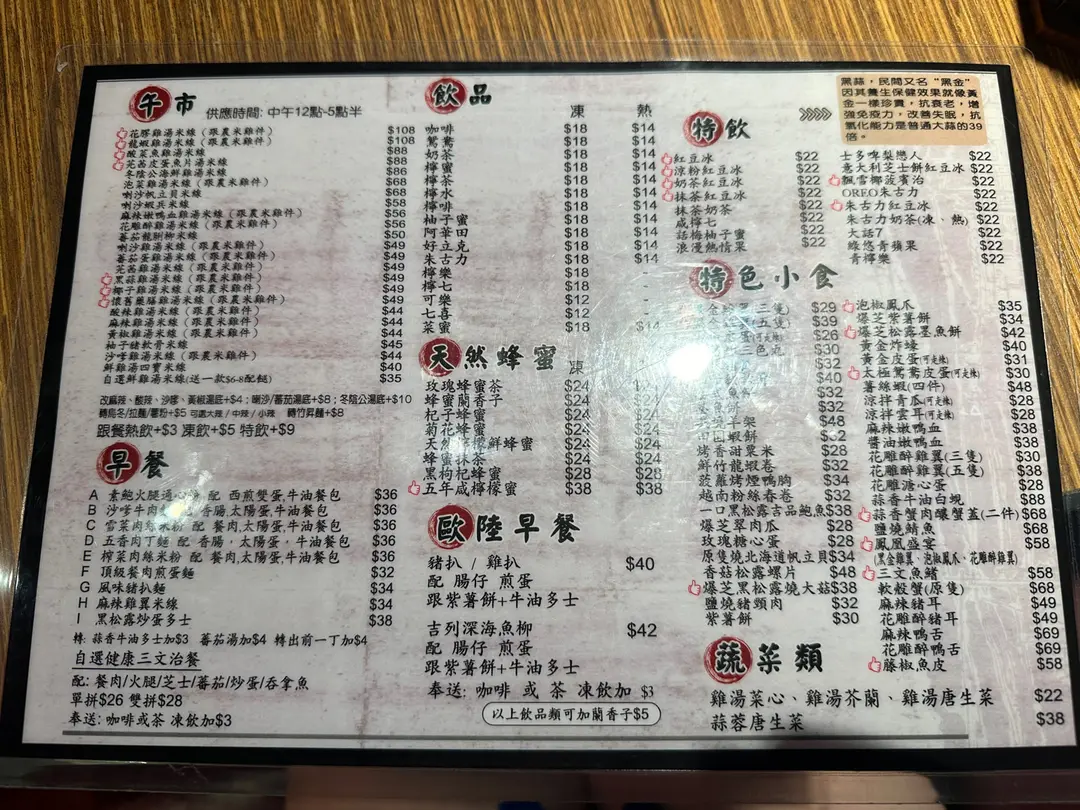 午市 供應時間: 中午12點-5點半
花膠雞湯米線（跟農米雞件） $108
龍蝦雞湯米線（跟農米雞件） $108
酸菜魚雞湯米線 $88
芫茜皮蛋魚片湯米線 $88
冬陰公海鮮雞湯米線 $86
泡菜雞湯米線（跟農米雞件） $68
喇沙帆立貝米線 $68
喇沙蝦兵米線 $58
麻辣嫩鴨血雞湯米線（跟農米雞件） $56
花雕醉雞湯米線（跟農米雞件） $56
蕃茄龍脷柳米線 $50
喇沙雞湯米線（跟農米雞件） $49
蕃茄蛋雞湯米線（跟農米雞件） $49
芫茜雞湯米線（跟農米雞件） $49
黑蒜雞湯米線（跟農米雞件） $49
椰子雞湯米線（跟農米雞件） $49
懷舊藥膳雞湯米線（跟農米雞件） $49
酸辣雞湯米線（跟農米雞件） $44
麻辣雞湯米線（跟農米雞件） $44
黃椒雞湯米線（跟農米雞件） $44
柚子豬軟骨米線 $45
沙嗲雞湯米線（跟農米雞件） $44
鮮雞湯四寶米線 $40
自選鮮雞湯米線(送一款$6-8配餸) $35
改麻辣、酸辣、沙嗲、黃椒湯底+$4；喇沙/蕃茄湯底+$8；冬陰公湯底+$10
轉烏冬/拉麵/薯粉+$5 可選大辣/中辣/小辣 轉竹昇麵+$8
跟餐熱飲+$3 凍飲+$5 特飲+$9
早餐
A 素鮑火腿通心粉 配 西煎雙蛋,牛油餐包 $36
B 沙嗲牛肉 香腸,太陽蛋,牛油餐包 $36
C 雪菜肉絲米粉 配 餐肉,太陽蛋,牛油餐包 $36
D 五香肉丁麵 配 香腸，太陽蛋，牛油餐包 $36
E 榨菜肉絲米粉 配 餐肉,太陽蛋,牛油餐包 $36
F 頂級餐肉煎蛋麵 $32
G 風味豬扒麵 $34
H 麻辣雞翼米線 $34
I 黑松露炒蛋多士 $38
轉: 蒜香牛油多士加$3 蕃茄湯加$4 轉出前一丁加$4
自選健康三文治餐
配: 餐肉/火腿/芝士/蕃茄/炒蛋/吞拿魚
單拼$26 雙拼$28
奉送: 咖啡或茶 凍飲加$3
飲品 凍 熱
咖啡 $18 $14
鴛鴦 $18 $14
奶茶 $18 $14
檸蜜 $18 $14
檸茶 $18 $14
檸水 $18 $14
檸啡 $18 $14
柚子蜜 $18 $14
阿華田 $18 $14
好立克 $18 $14
朱古力 $18 $14
檸樂 $18 -
檸七 $18 -
可樂 $12 -
七喜 $12 -
菜蜜 $18 $14
天然蜂蜜 凍
玫瑰蜂蜜茶 $24 $24
蜂蜜蘭香子 $24 $24
杞子蜂蜜 $24 $24
菊花蜂蜜 $24 $24
天然 檸檬鮮蜂蜜 $24 $24
蜂蜜抹茶 $24 $24
黑枸杞蜂蜜 $28 $28
五年咸檸檬蜜 $38 $38
歐陸早餐
豬扒 / 雞扒 $40
配 腸仔 煎蛋
跟紫薯餅+牛油多士
吉列深海魚柳 $42
配 腸仔 煎蛋
跟紫薯餅+牛油多士
奉送: 咖啡 或 茶 凍飲加 $3
以上飲品類可加蘭香子$5
黑蒜，民間又名“黑金”
因其養生保健效果就像黃
金一樣珍貴，抗衰老，增
強免疫力，改善失眠，抗
氧化能力是普通大蒜的39
倍。
特飲
紅豆冰 $22
涼粉紅豆冰 $22
奶茶紅豆冰 $22
抹茶紅豆冰 $22
抹茶奶茶 $22
咸檸七 $22
話梅柚子蜜 $22
浪漫熱情果 $22
士多啤梨戀人 $22
意大利芝士餅紅豆冰 $22
飄雪椰菠賓治 $22
OREO朱古力 $22
朱古力紅豆冰 $22
朱古力奶茶(凍、熱) $22
大話7 $22
綠悠青蘋果 $22
青檸樂 $22
特色小食
三隻） $29
五隻） $39
(可走辣) $26
三色丸 $30
$32
$40
$32
羊架 $48
蝦餅
烤香甜粟米 $28
鮮竹龍蝦卷 $32
菠蘿烤煙鴨胸 $34
越南粉絲春卷 $32
一口黑松露吉品鮑魚 $38
爆芝翠肉瓜 $28
玫瑰糖心蛋 $28
原隻燒北海道帆立貝 $34
香菇松露螺片 $48
爆芝黑松露燒大菇 $38
鹽燒豬頸肉 $32
紫薯餅 $30
泡椒鳳爪 $35
爆芝紫薯餅 $34
爆芝松露墨魚餅 $42
黃金炸蠔 $40
黃金皮蛋(可走辣) $31
太極鴛鴦皮蛋(可走辣) $30
薯絲蝦(四件) $48
涼拌青瓜(可走辣) $28
涼拌雲耳(可走辣) $28
麻辣嫩鴨血 $38
醬油嫩鴨血 $38
花雕醉雞翼(三隻) $30
花雕醉雞翼(五隻) $38
花雕溏心蛋 $28
蒜香牛油白蜆 $88
蒜香蟹肉釀蟹蓋(二件) $68
鹽燒鯖魚 $68
鳳凰盛宴 $58
(黑金雞翼、泡椒鳳爪、花雕醉雞翼)
三文魚鰭 $58
軟殼蟹(原隻) $68
麻辣豬耳 $49
花雕醉豬耳 $49
麻辣鴨舌 $69
花雕醉鴨舌 $69
藤椒魚皮 $58
蔬菜類
雞湯菜心、雞湯芥蘭、雞湯唐生菜 $22
蒜蓉唐生菜 $38